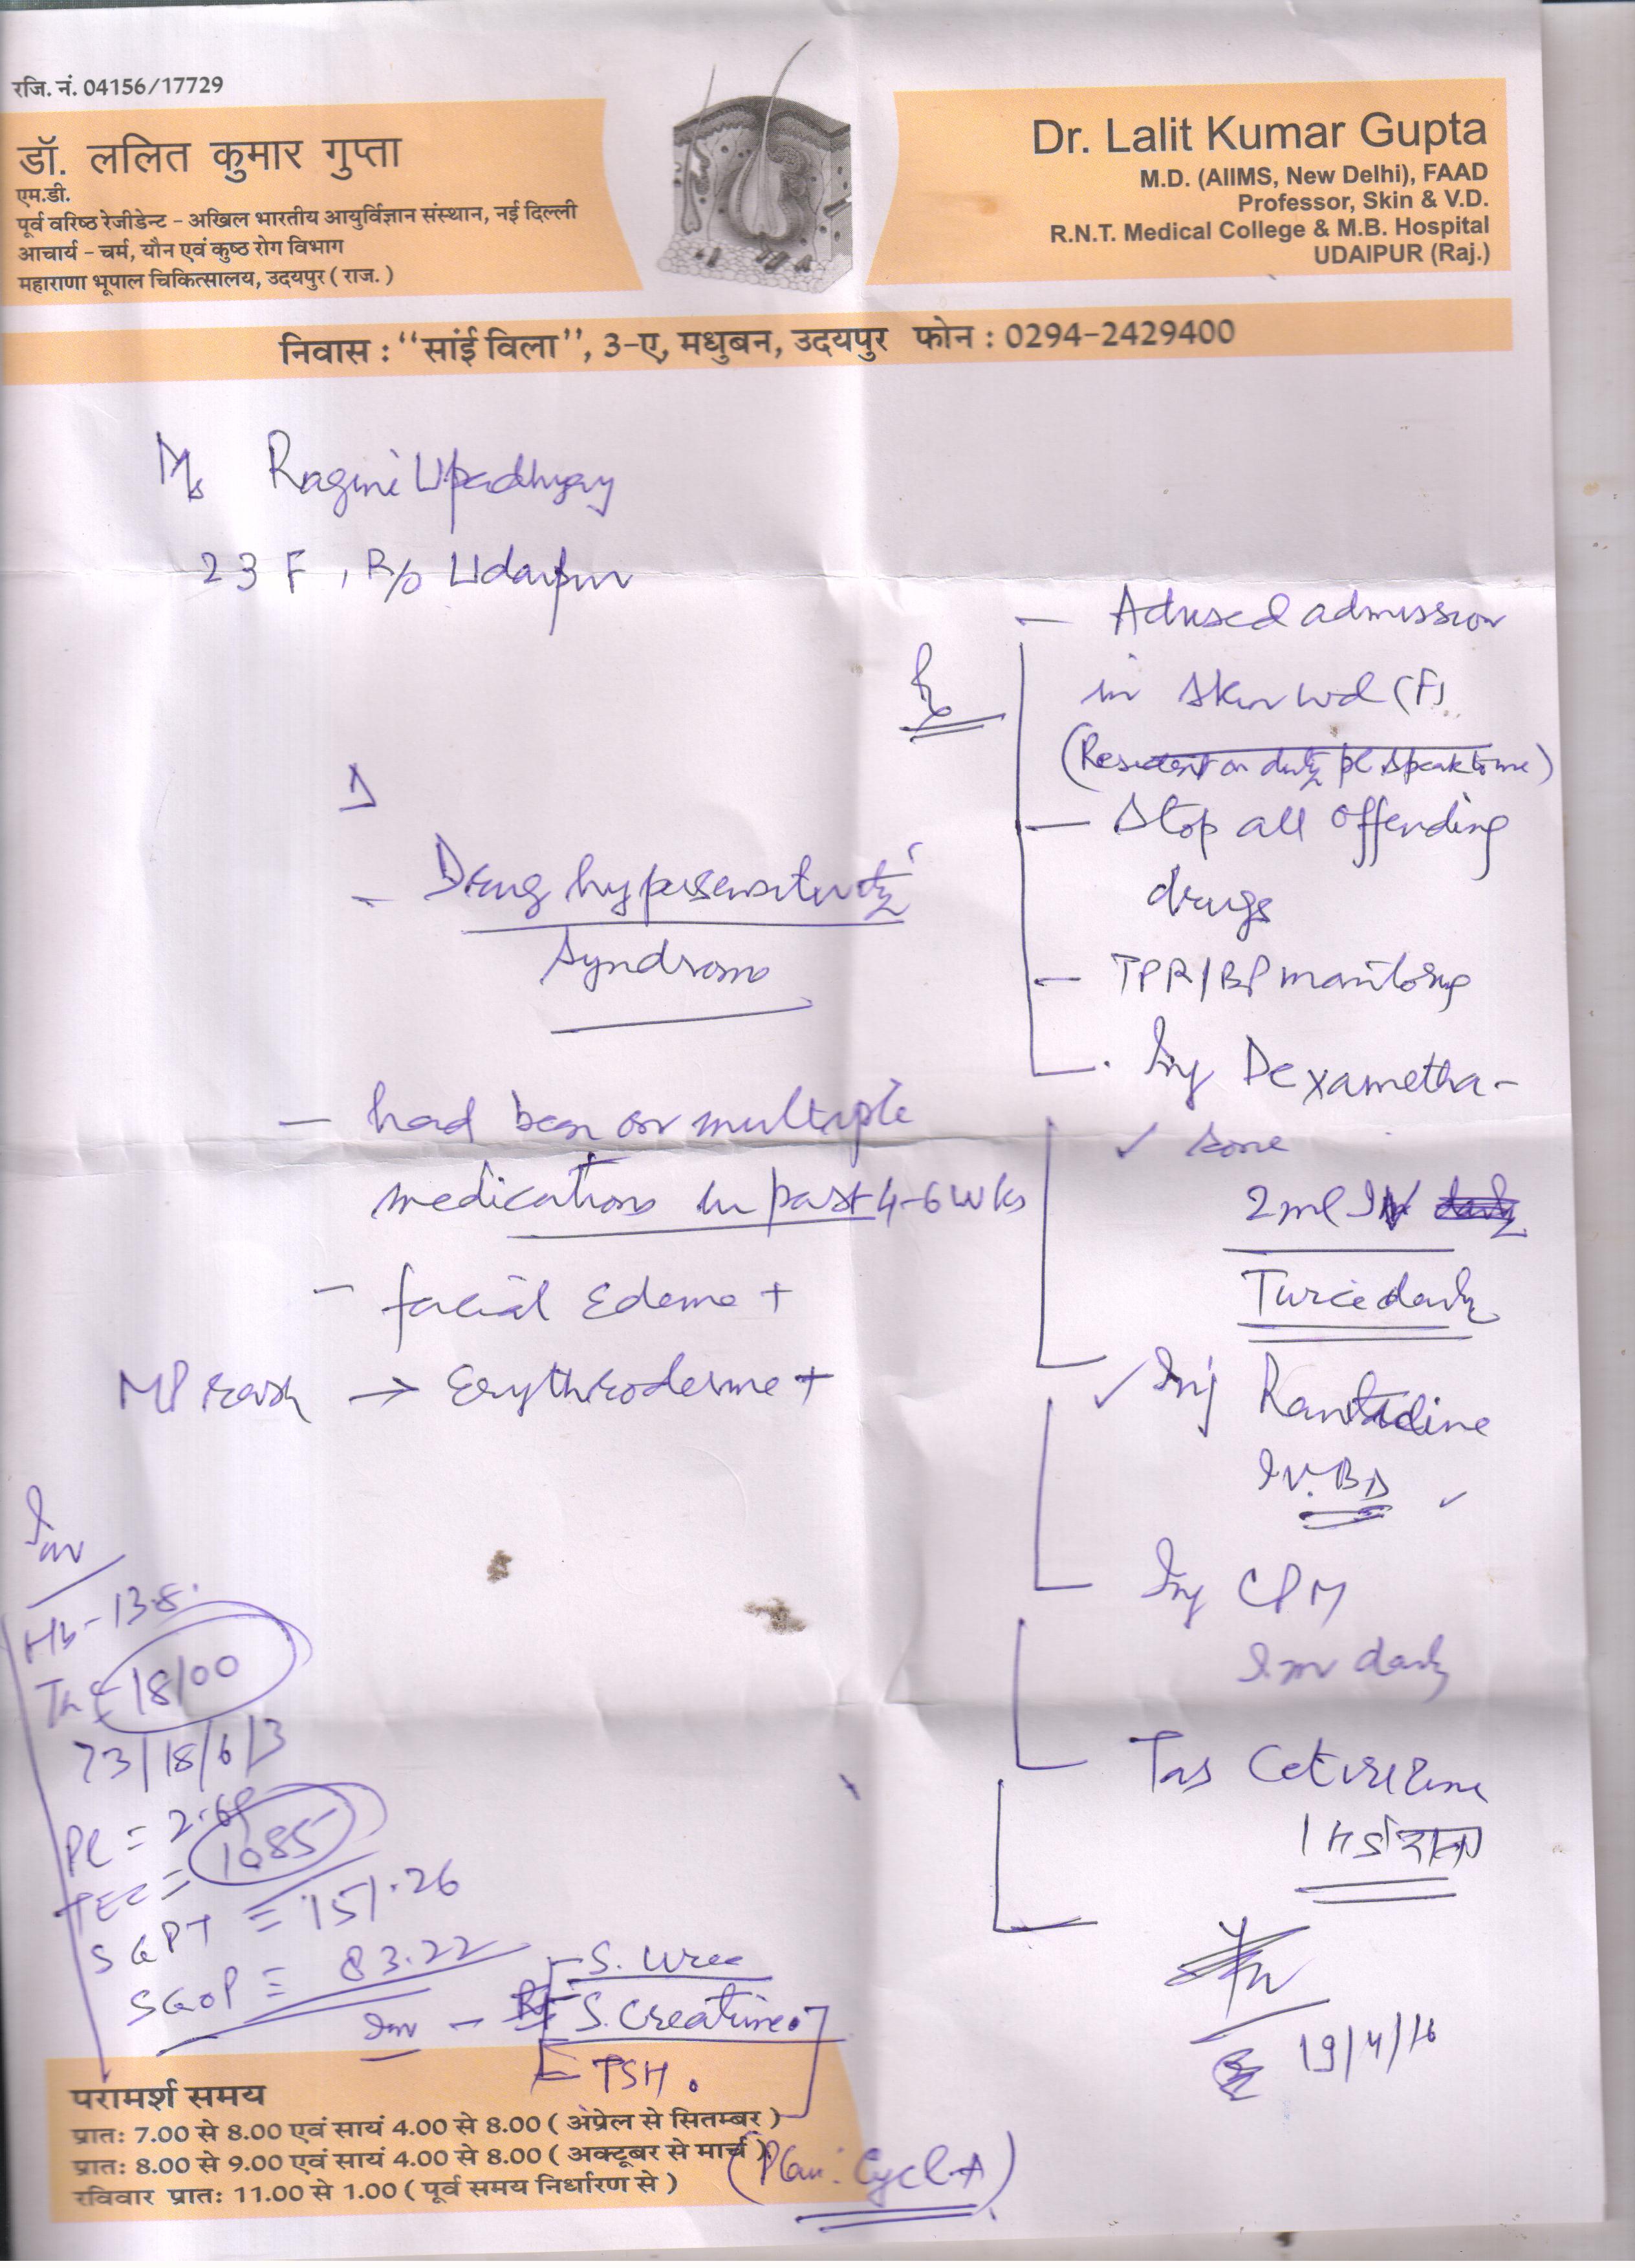 रजि. नं. 04156/17729
डॉ. ललित कुमार गुप्ता
एम.डी.
पूर्व वरिष्ठ रेजीडेन्ट - अखिल भारतीय आयुर्विज्ञान संस्थान, नई दिल्ली
आचार्य - चर्म, यौन एवं कुष्ठ रोग विभाग
महाराणा भूपाल चिकित्सालय, उदयपुर ( राज. )
Dr. Lalit Kumar Gupta
M.D. (AIIMS, New Delhi), FAAD
Professor, Skin & V.D.
R.N.T. Medical College & M.B. Hospital
UDAIPUR (Raj.)
निवास : “सांई विला”, 3-ए, मधुबन, उदयपुर फोन : 0294-2429400
Ms Ragini Upadhyay
23 F, R/o Udaipur
Δ
- Drug hypersensitivity
Syndrome
- had been on multiple
medications in past 4-6 wks
- facial Edema +
MP rash → Erythroderma +
Inv
Hb - 13.8
18100
73/18/6/3
PC = 2.68
TEC = 1085
SGPT = 151.26
SGOT = 83.22
Inv - S. Urea
S. Creatinine
TSH.
(Plan: Cycl A)
Rx
- Advised admission
in Skin wd (F)
(Resident on duty pl speak to me)
- Stop all offending
drugs
- TPR/BP monitoring
. Inj Dexametha-
✓ sone
2ml IV
Twice daily
✓ Inj Ranitidine
IV. BD ✓
Inj CPM
Im daily
Tab Cetirizine
1
19/4/16
परामर्श समय
प्रातः 7.00 से 8.00 एवं सायं 4.00 से 8.00 ( अप्रेल से सितम्बर )
प्रातः 8.00 से 9.00 एवं सायं 4.00 से 8.00 ( अक्टूबर से मार्च )
रविवार प्रातः 11.00 से 1.00 ( पूर्व समय निर्धारण से )